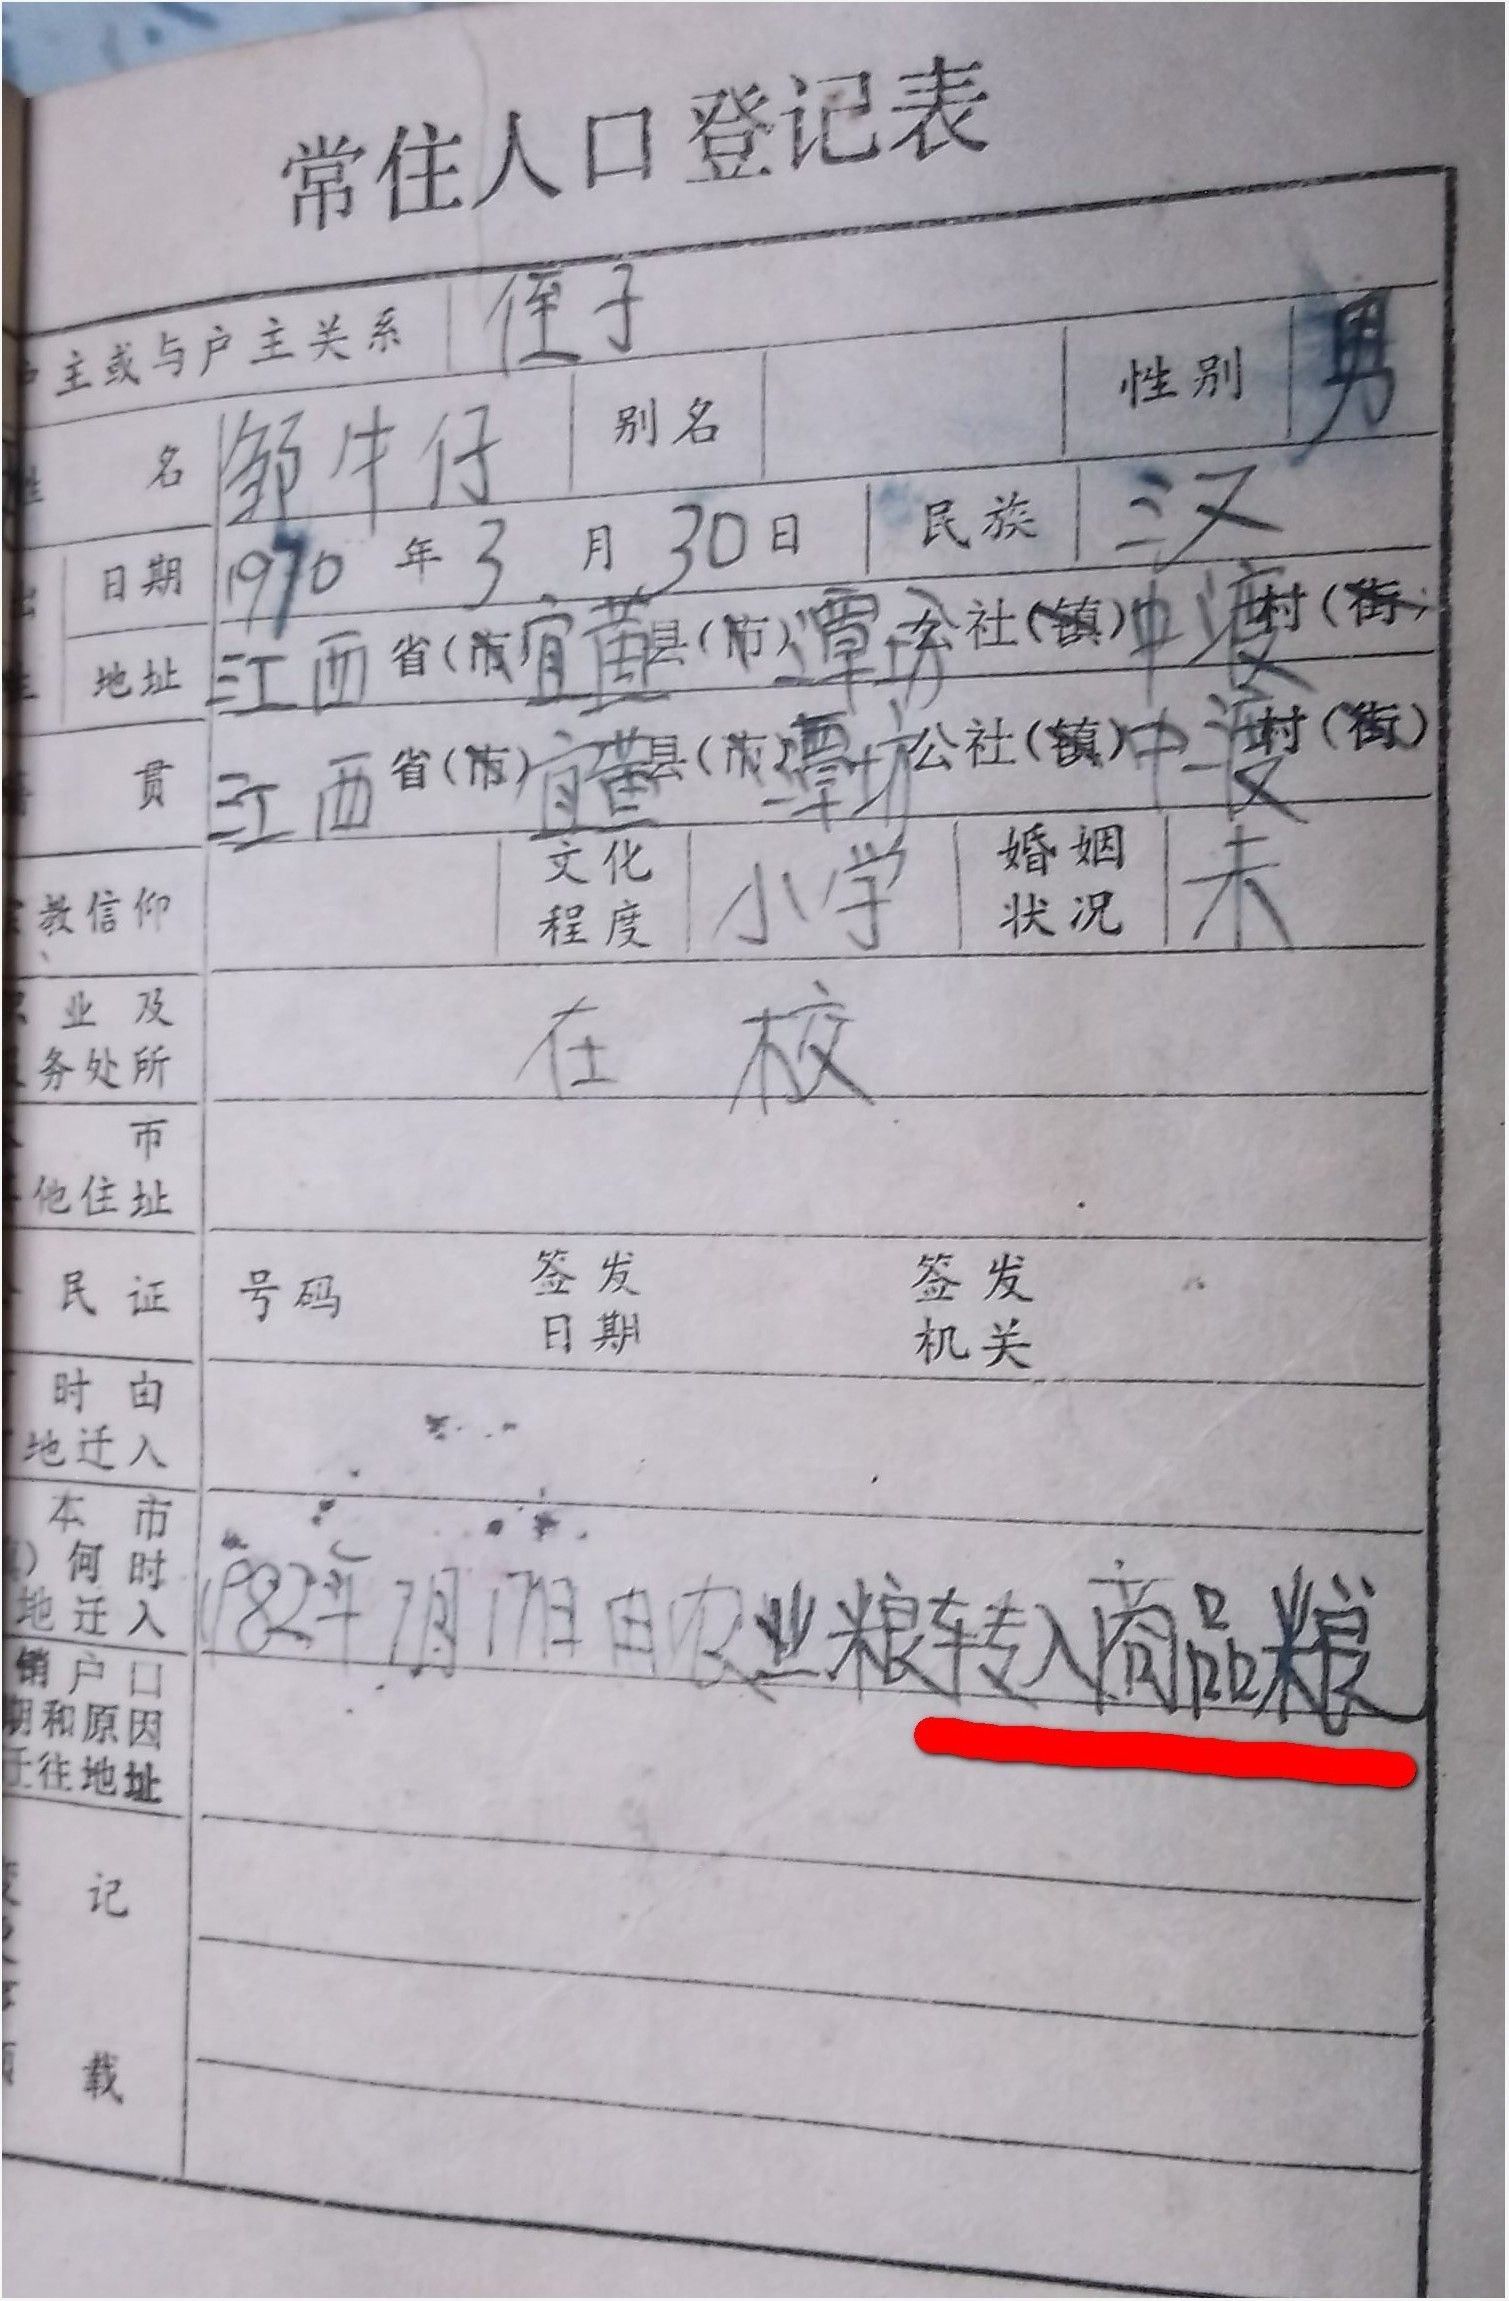 常住人口登记表
主或与户主关系 侄子
名 邹牛仔 别名 性别 男
日期 1970年3月30日 民族 汉
地址 江西省(市)宜黄县(市)潭坊公社(镇)中渡村(街)
贯 江西省(市)宜黄县(市)潭坊公社(镇)中渡村(街)
教信仰 文化程度 小学 婚姻状况 未
业及
务处所 在校
市
他住址
民证 号码 签发日期 签发机关
时由
地迁入
本市
)何时
地迁入 1982年7月17日由农业粮转入商品粮
销户口
期和原因
迁往地址
记
载